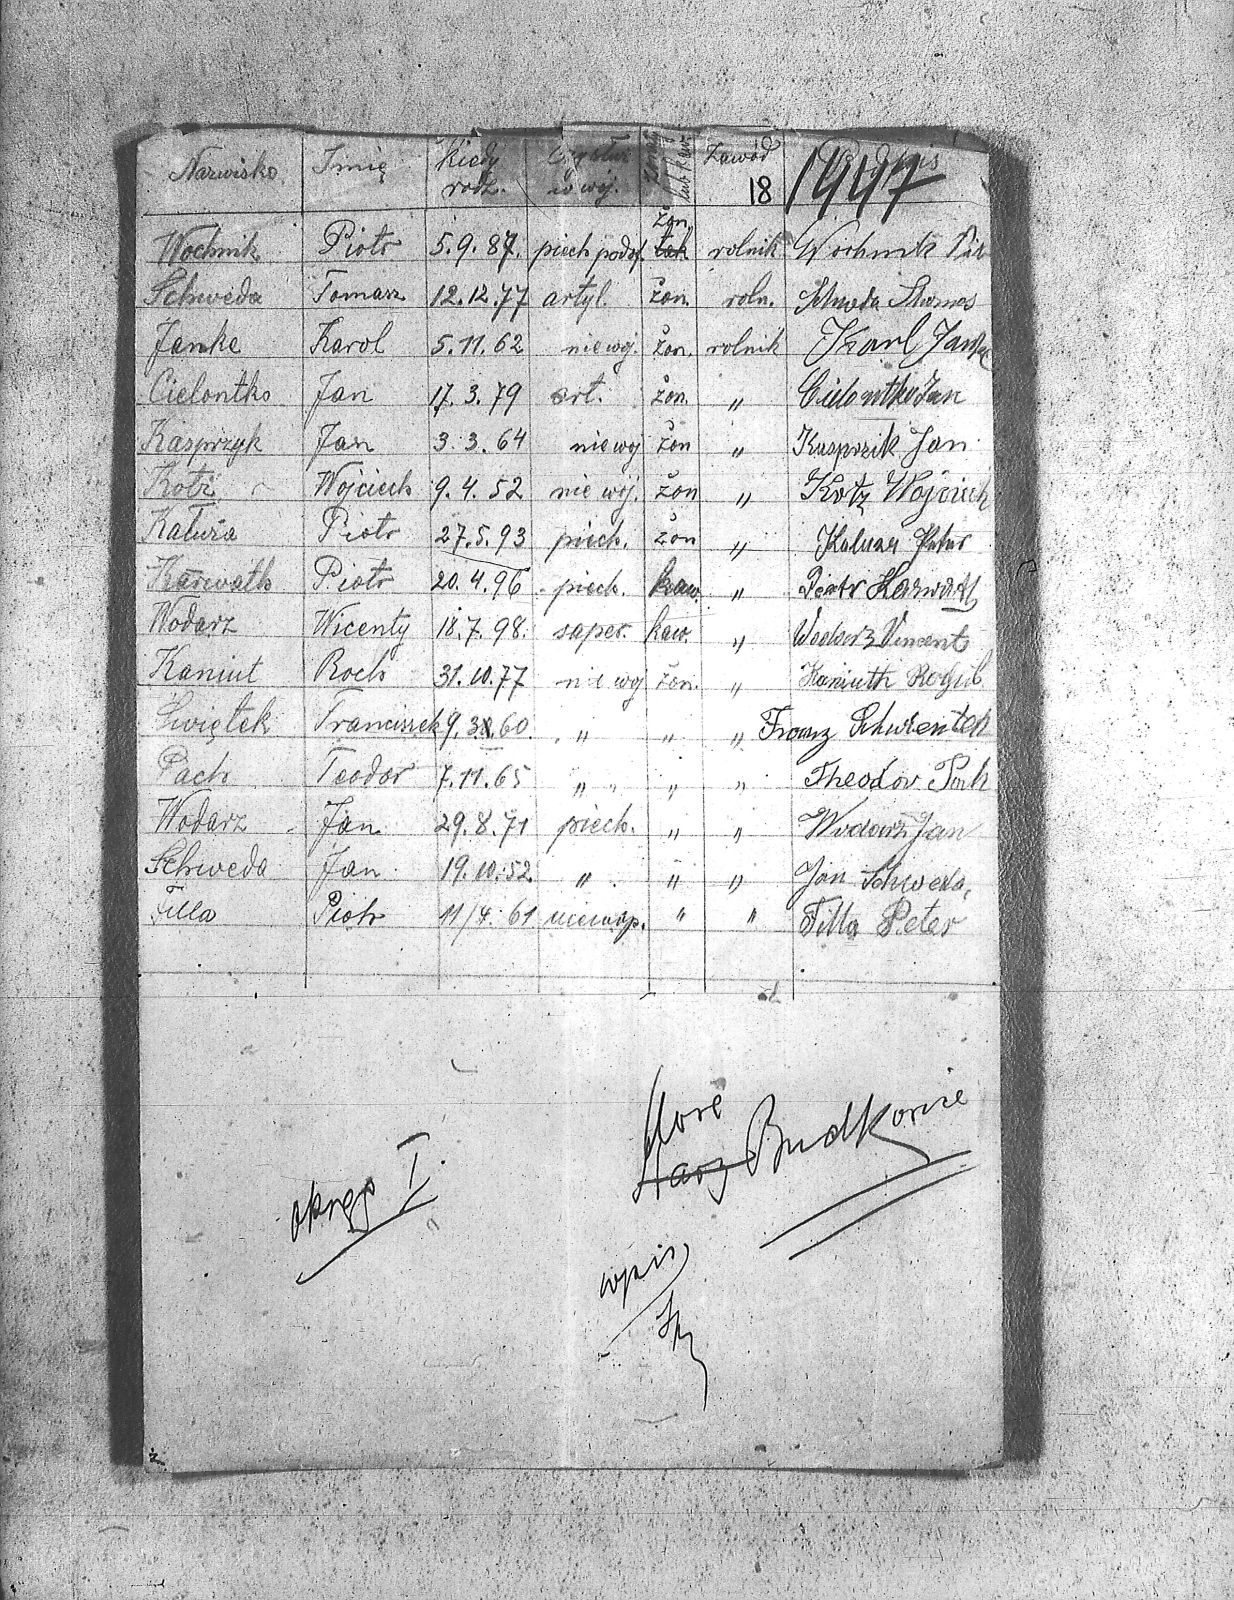 Nazwisko Imię Kiedy rodz. Czy służ. w woj. żonaty lub kaw. Zawód Podpis
18 1997
Wochnik Piotr 5.9.87. piech podof. żon. tak rolnik Wochnik Piotr
Schweda Tomasz 12.12.77 artyl. żon. roln. Schweda Thomas
Janke Karol 5.11.62 nie woj. żon. rolnik Karl Janke
Cielontko Jan 17.3.79 art. żon. " Cielontko Jan
Kasprzyk Jan 3.3.64 nie woj żon " Kasprzik Jan
Kotz Wojciech 9.4.52 nie woj. żon " Kotz Wojciech
Kaluża Piotr 27.5.93 piech. żon " Kaluza Peter
Karwath Piotr 20.4.96 piech. kaw. " Piotr Karwath
Wodarz Wicenty 18.7.98. saper. kaw. " Wodarz Vincent
Kaniut Roch 31.10.77 nie woj żon. "
Świętek Franciszek 9. .60. " " " Franz Schwientek
Pach Teodor 7.11.65 " " " " Theodor Pach
Wodarz Jan 29.8.71 piech. " " Wodarz Jan
Schweda Jan 19.10.52. " " " Jan Schweda
Filla Piotr 11/4. 61 " " Filla Peter
Stare
Starz Budkowice
okręg I.
wpis